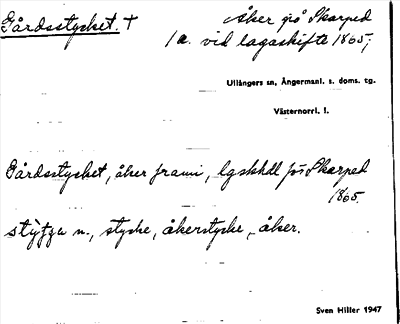 Gårdsstycket. †
åker på Skarped
1a. vid lagaskifte 1865;
Ullångers sn, Ångermanl. s. doms. tg.
Västernorrl. l.
Gårdsstycket, åker frami, lgskhdl för Skarped
1865.
n., stycke, åkerstycke, åker.
Sven Hiller 1947